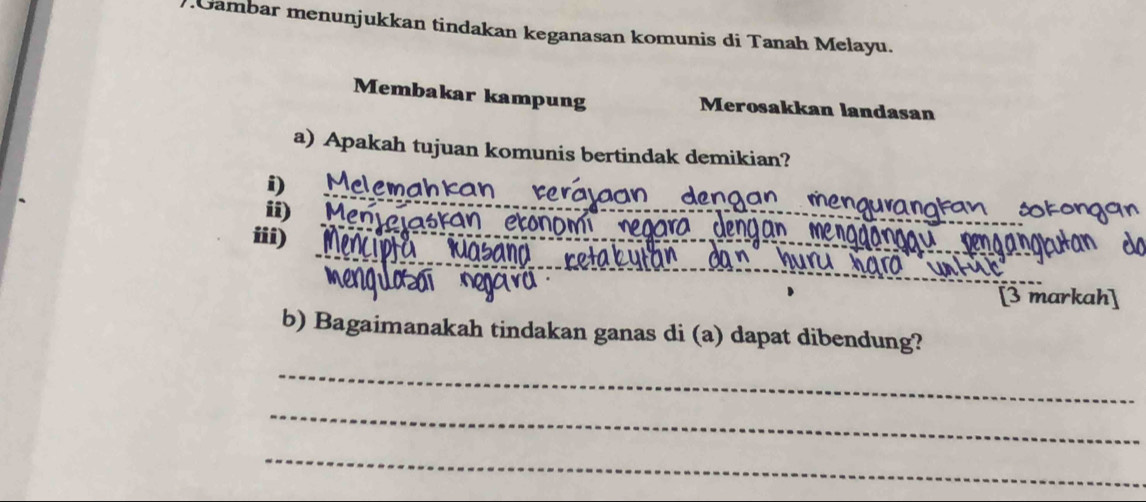 7.Gambar menunjukkan tindakan keganasan komunis di Tanah Melayu.
Membakar kampung Merosakkan landasan
a) Apakah tujuan komunis bertindak demikian?
i) Melemahkan kerajaan dengan mengurangkan sokongan
ii) Menjejaskan ekonomi negara dengan menggonggu pengangkutan da
iii) Mencipta suasana ketakutan dan huru hara untuk
menguasai negara.
[3 markah]
b) Bagaimanakah tindakan ganas di (a) dapat dibendung?